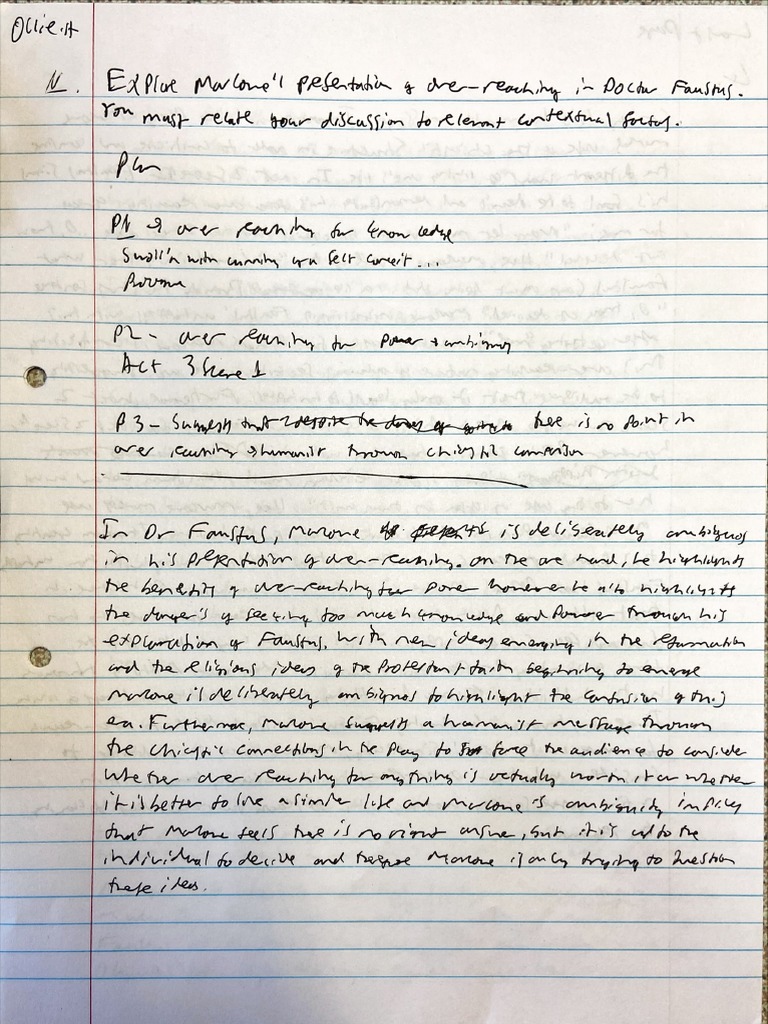 Ollie.H
N. Explore Marlowe's presentation of over-reaching in Doctor Faustus.
You must relate your discussion to relevant contextual factors.
Plan
P1 → over reaching for knowledge
Swoll'n with cunning of a self conceit...
P2 - over reaching for power + ambition
Act 3 Scene 1
P3 - Suggests that despite the there is no point in
over reaching → humanist through chiastic comparison
In Dr Faustus, Marlowe is deliberately ambiguous
in his presentation of over-reaching. On the one hand, he highlights
the benefits of over-reaching for power however he also highlights
the danger's of seeking too much knowledge and Power through his
exploration of Faustus. With new ideas emerging in the reformation
and the religious ideas of the Protestant faith beginning to emerge
Marlowe is deliberately ambiguous to highlight the confusion of this
era. Furthermore, Marlowe suggests a humanist message through
the chiastic connections in the play to force the audience to consider
whether over reaching for anything is actually worth it or whether
it is better to live a simpler life and Marlowe's ambiguity implies
that Marlowe feels there is no right answer, but it is up to the
individual to decide and therefore Marlowe is only trying to question
these ideas.